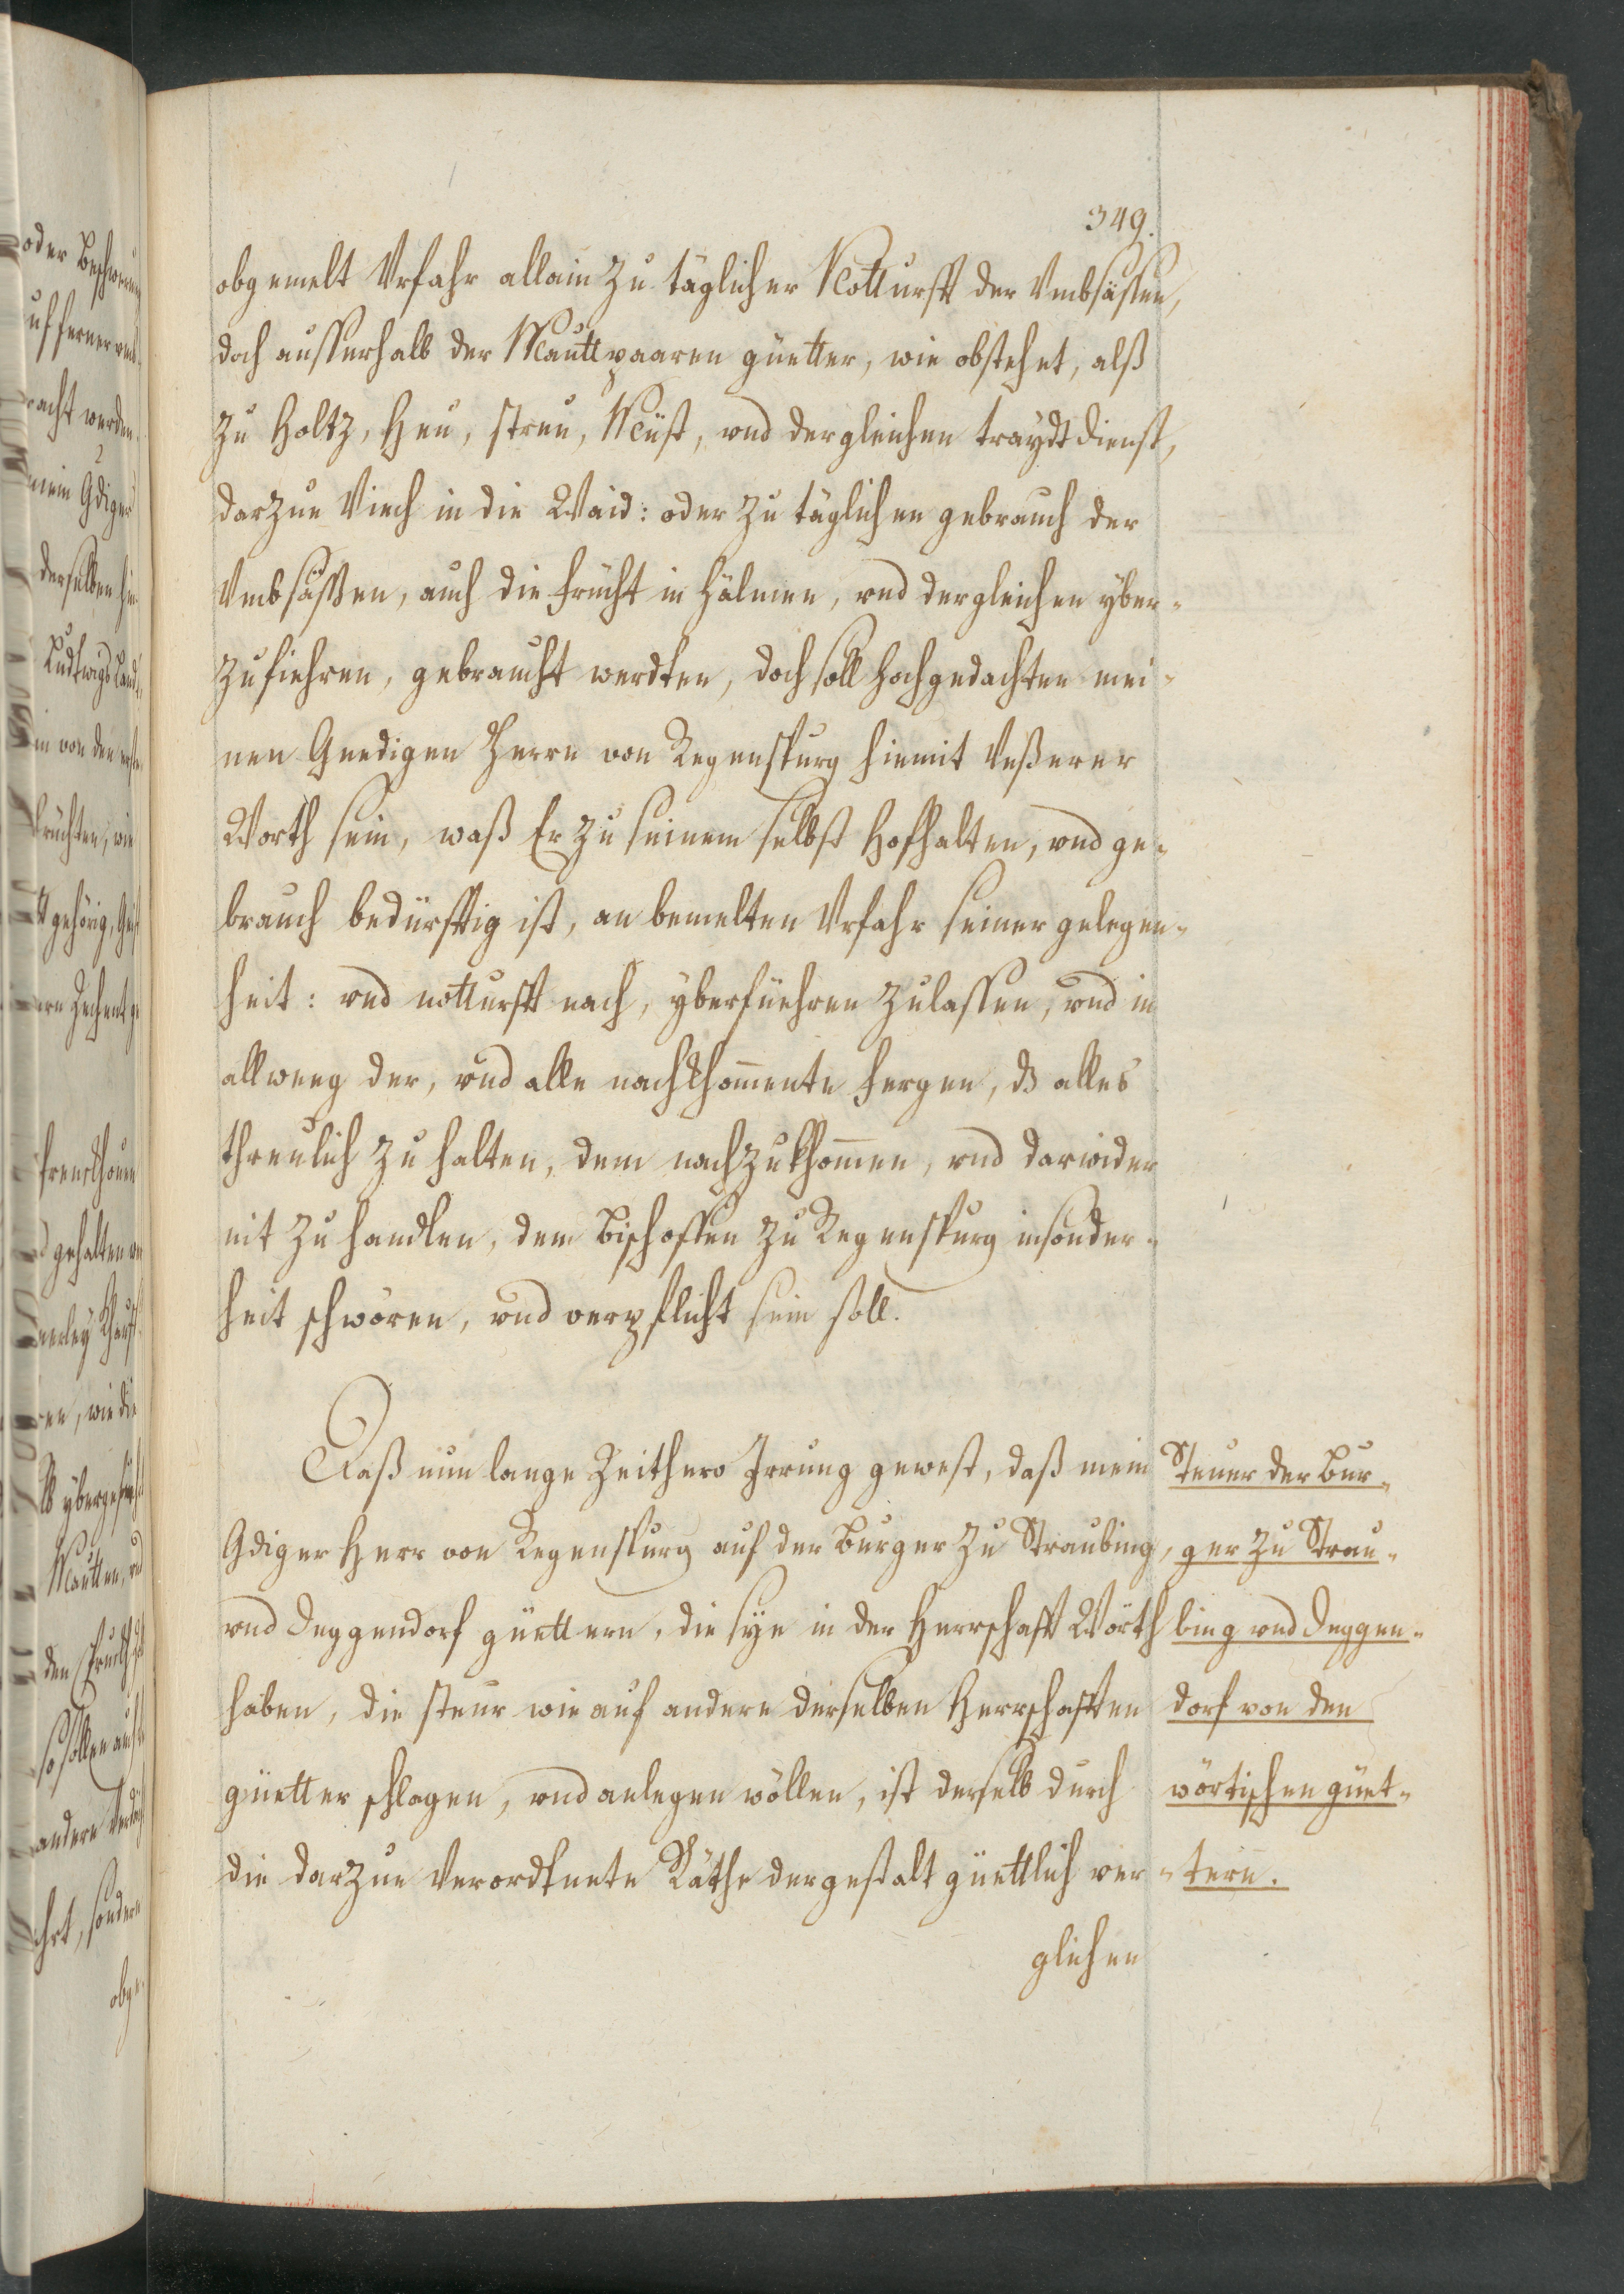 349.
obgemelt Vrfahr allain zu täglicher Notturfft der Vmbsässen,
doch ausserhalb der Mauttpaaren güetter, wie obstehet, alß
zu Holtz, Heu, streu, Müst, vnd dergleichen traydtdienst,
darzue Viech in die Waid: oder zu täglichen gebrauch der
Vmbsässen, auch die frücht in Hälmen, vnd dergleichen yber-
zufiehren, gebraucht werdten, doch soll hochgedachten mei-
nen Gnedigen Herrn von Regenspurg hiemit
Worth sein, waß Er zu seinem selbst Hofhalten, vnd ge-
brauch bedürfftig ist, an bemelten Vrfahr seiner gelegen-
heit: vnd notturfft nach, yberfüehren zulassen, vnd in
allweeg der, vnd alle nachkhom̄ente fergen, dz alles
threulich zu halten, dem nachzukhom̄en, vnd darwider
nit zu handlen, dem Bischoffen zu Regenspurg insonder-
heit schwören, vnd verpflicht sein soll.
Daß nun lange Zeithero Irrung gewest, daß mein
Gdiger Herr von Regenspurg auf der Burger zu Straubing,
vnd Deggendorf güettern, die sye in der Herrschafft Wörth
haben, die steur wie auf andere derselben Herrschafften
güetter schlagen, vnd anlegen wöllen, ist derselb durch
die darzue Verordtnete Räthe dergestalt güettlich ver-
glichen
Steuer der Bur-
ger zu Strau-
bing vnd Deggen-
dorf von den
wörtischen güet-
tern.
oder
werden
derselben
von den
früchten, wie
gehörig,
Zechent
gehalten
wie die
Mautten, vnd
so sollen auch
andere
sondern
obge-